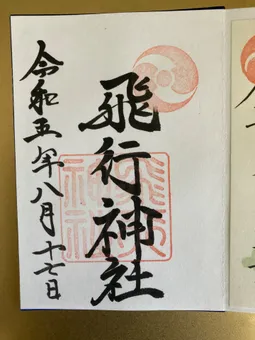 飛行神社
令和五年八月十七日
飛行神社